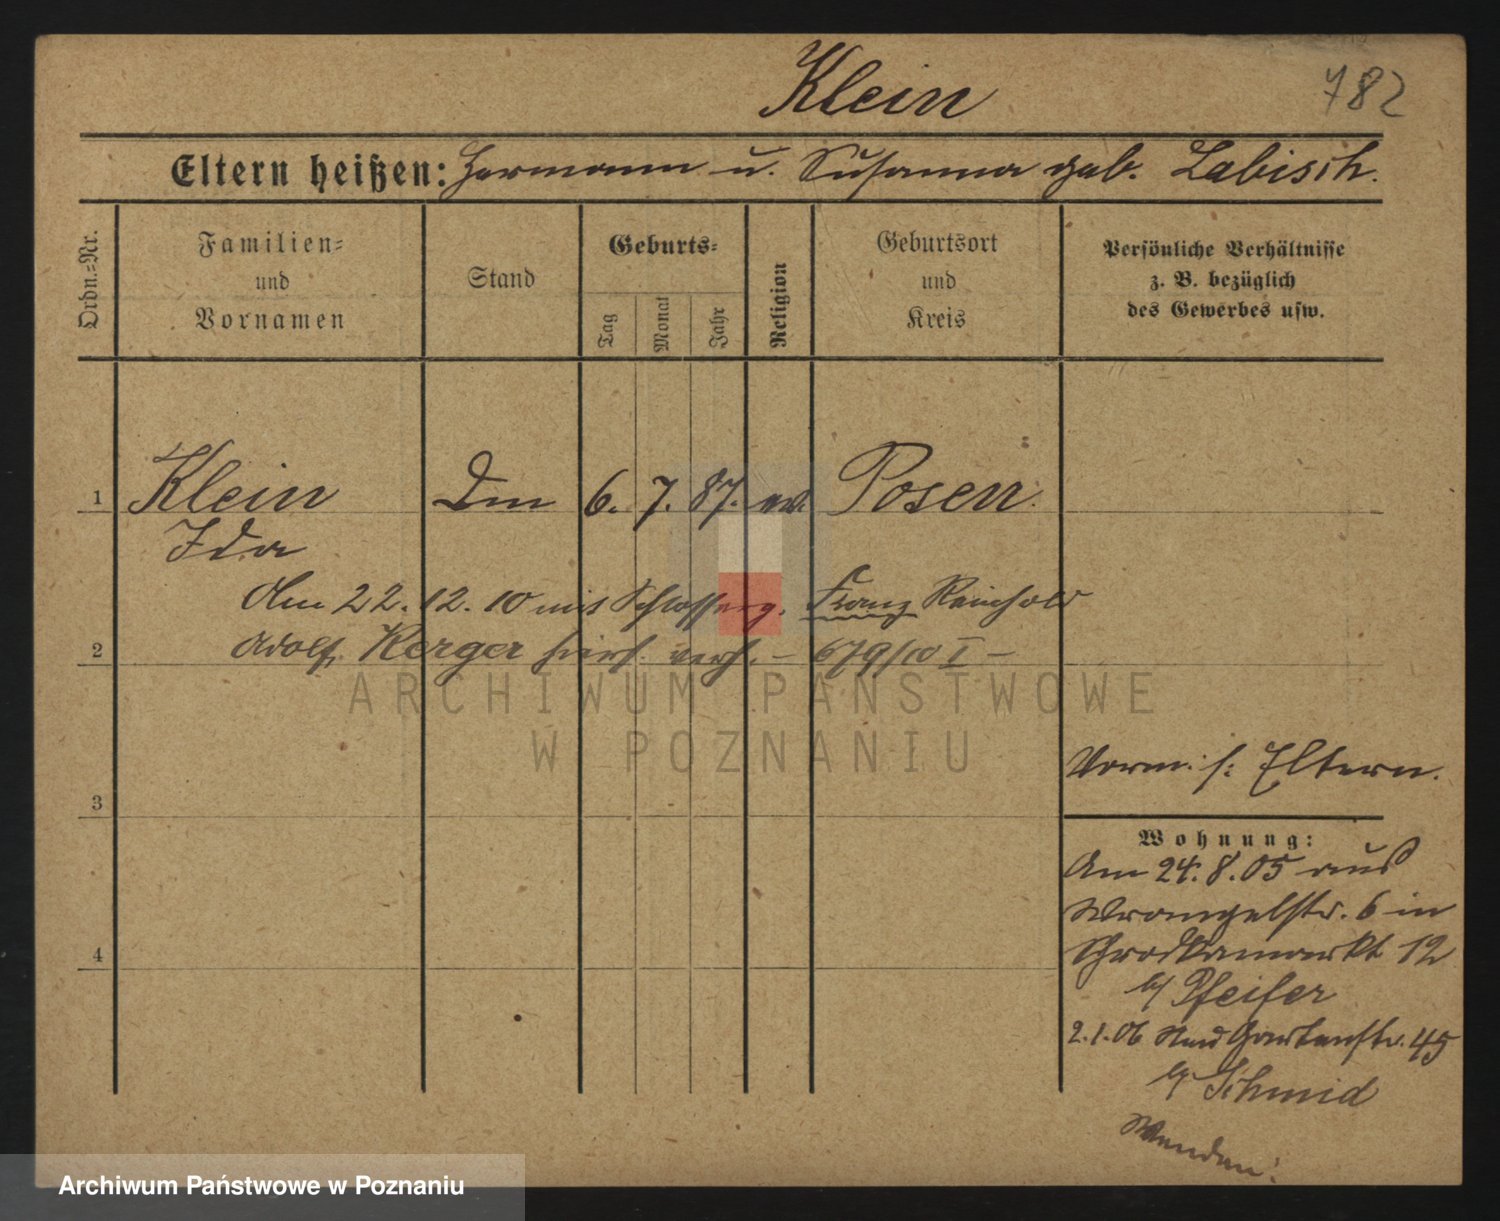 Klein
782
Eltern heißen: Hermann u. Susanna geb. Labisch.
Ordn.=Nr.
Familien=
und
Vornamen
Stand
Geburts=
Tag
Monat
Jahr
Religion
Geburtsort
und
Kreis
Persönliche Verhältnisse
z. B. bezüglich
des Gewerbes usw.
1 Klein 6. 7. 87. ev. Posen.
Ida
Am 22.12.10 mit Schlosserg. Franz Reinhold
2 Adolf Kerger hiers. verh. – 679/10 I –
ARCHIWUM PAŃSTWOWE
W POZNANIU
Vorm. s: Eltern.
3
Wohnung:
Am 24.8.05 aus
Wrangelstr. 6 in
Schrodkamarkt 12
b/ Pfeifer
4
2.1.06 Neue Gartenstr. 45
b/ Schmid
Wenden!
Archiwum Państwowe w Poznaniu